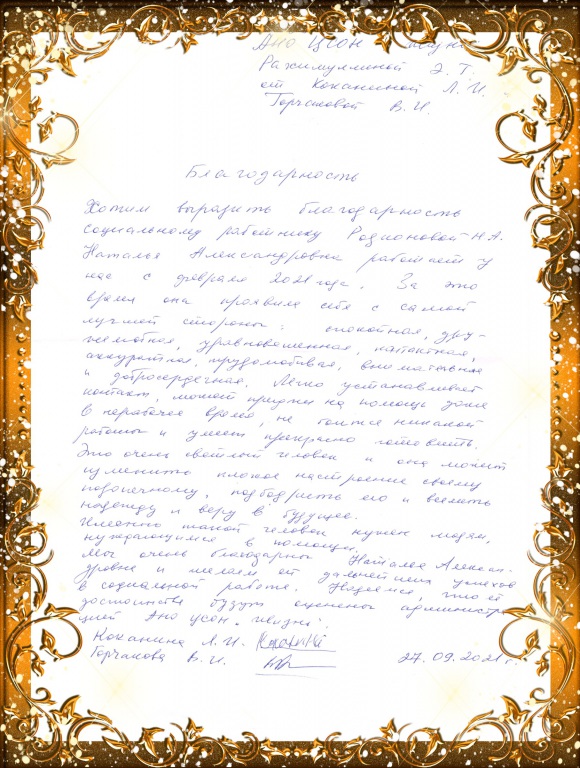 Ано ЦСОН
Рахимуллиной Э. Т.
от Коканиной Л. И.
Горчаковой В. И.
Благодарность
Хотим выразить благодарность
социальному работнику Родионовой Н.А.
Наталья Александровна работает у
нас с февраля 2021 года. За это
время она проявила себя с самой
лучшей стороны: спокойная, дру-
желюбная, уравновешенная, тактичная,
аккуратная, трудолюбивая, внимательная
и добросердечная. Легко устанавливает
контакт, может придти на помощь даже
в нерабочее время, не боится никакой
работы и умеет прекрасно готовить.
Это очень светлый человек и она может
изменить плохое настроение своему
подопечному, подбодрить его и вселить
надежду и веру в будущее.
Именно такой человек нужен людям,
нуждающимся в помощи.
Мы очень благодарны Наталье Алексан-
дровне и желаем ей дальнейших успехов
в социальной работе. Надеемся, что её
достоинства будут оценены администра-
цией Ано ЦСОН "Жизнь".
Коканина Л. И.
Горчакова В. И. 27.09.2021 г.